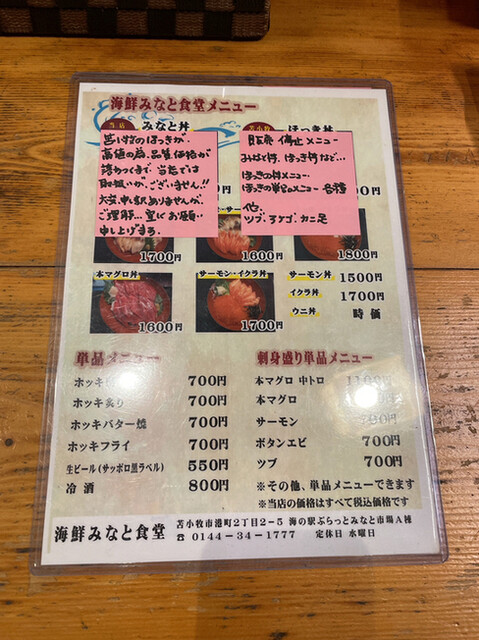 海鮮みなと食堂メニュー
当店
みなと丼
苫小牧
ほっき丼
苫小牧のほっきが、
高値の為、品質価格が
落ちつくまで、当店では
取扱いが、ございません!!
大変申し訳ありませんが、
ご理解…宜しくお願い
申し上げます。
販売停止メニュー
みなと丼、ほっき丼など…
ほっきの丼メニュー
ほっきの単品メニュー各種
他、
ツブ、タコ、カニ足
1700円
1600円
1800円
本マグロ丼
1600円
サーモン・イクラ丼
1700円
サーモン丼 1500円
イクラ丼 1700円
ウニ丼 時価
単品メニュー
ホッキ 700円
ホッキ炙り 700円
ホッキバター焼 700円
ホッキフライ 700円
生ビール(サッポロ黒ラベル) 550円
冷酒 800円
刺身盛り単品メニュー
本マグロ 中トロ 1100円
本マグロ
サーモン 700円
ボタンエビ 700円
ツブ 700円
※その他、単品メニューできます
※当店の価格はすべて税込価格です
海鮮みなと食堂
苫小牧市港町2丁目2-5 海の駅ぷらっとみなと市場A棟
☎0144-34-1777 定休日 水曜日